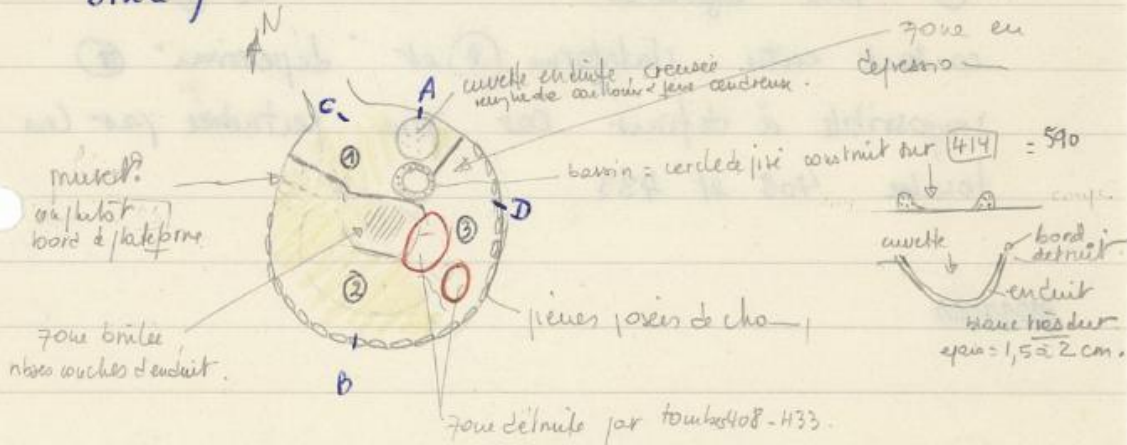 N
zone en
dépression
A
cuvette enduite, creusée
remplie de cailloux & terre cendreuse.
C
①
bassin = cercle de pisé construit sur 414 = 590
muret?
ou plutôt
bord de plateforme
D
③
coupe
cuvette
bord
détruit
②
enduit
blanc très dur
épais = 1,5 à 2 cm.
pierres posées de champ
zone brûlée,
nbses couches d'enduit.
B
zone détruite par tombes 408-433.